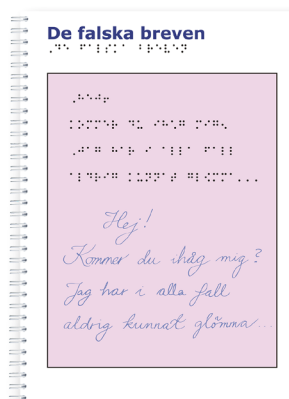 De falska breven
⠠⠙⠑ ⠋⠁⠇⠎⠅⠁ ⠃⠗⠑⠧⠑⠝
⠠⠓⠑⠚⠖
⠅⠕⠍⠍⠑⠗ ⠙⠥ ⠊⠓⠡⠛ ⠍⠊⠛⠢
⠠⠚⠁⠛ ⠓⠁⠗ ⠊ ⠁⠇⠇⠁ ⠋⠁⠇⠇
⠁⠇⠙⠗⠊⠛ ⠅⠥⠝⠝⠁⠞ ⠛⠇⠪⠍⠍⠁⠄⠄⠄
Hej!
Kommer du ihåg mig?
Jag har i alla fall
aldrig kunnat glömma...